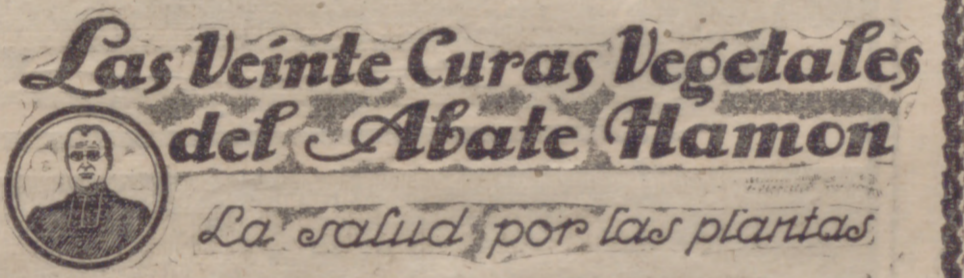 Las Veinte Curas Vegetales
del Abate Hamon
La salud por las plantas